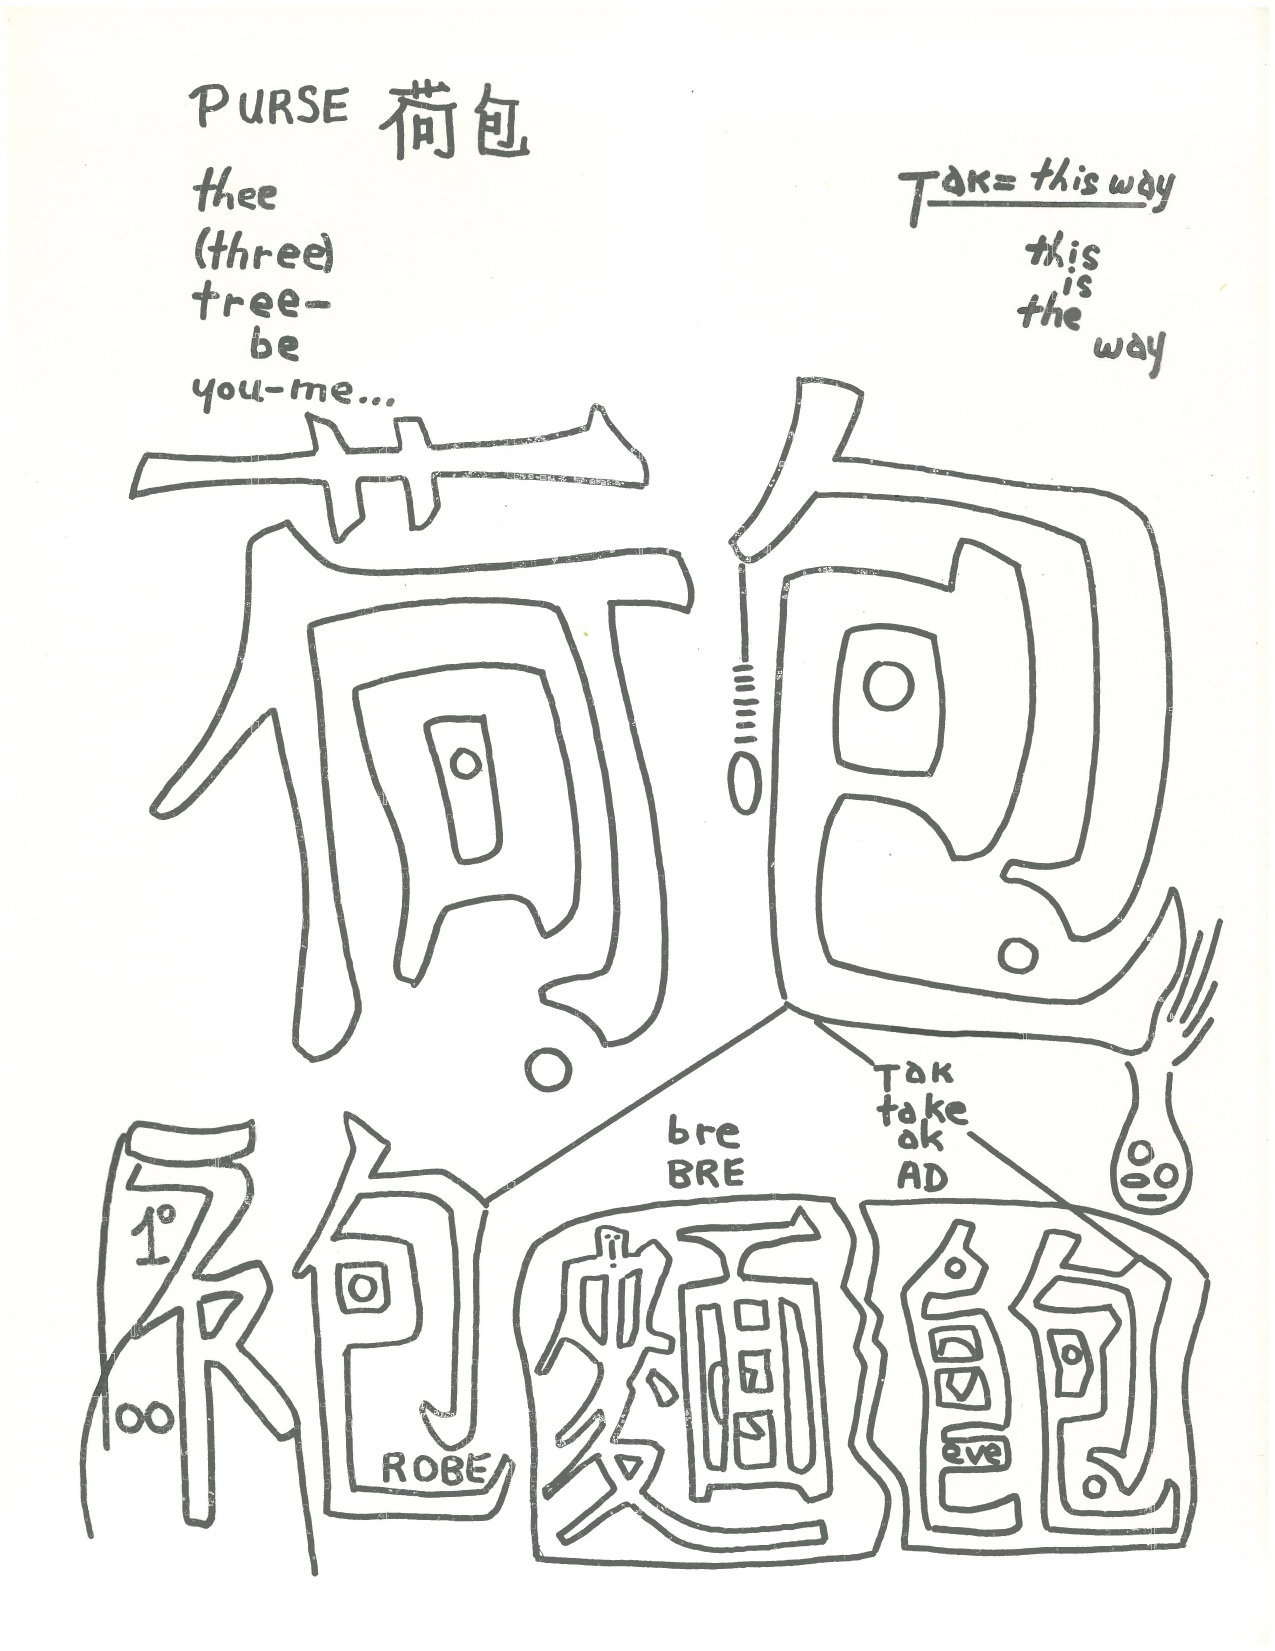 PURSE 荷包
thee
(three)
tree-
be
you-me...
TAK= this way
this
is
the
way
荷包
TAK
take
ak
AD
bre
BRE
1º
oo
包
ROBE
麵
飽
eve